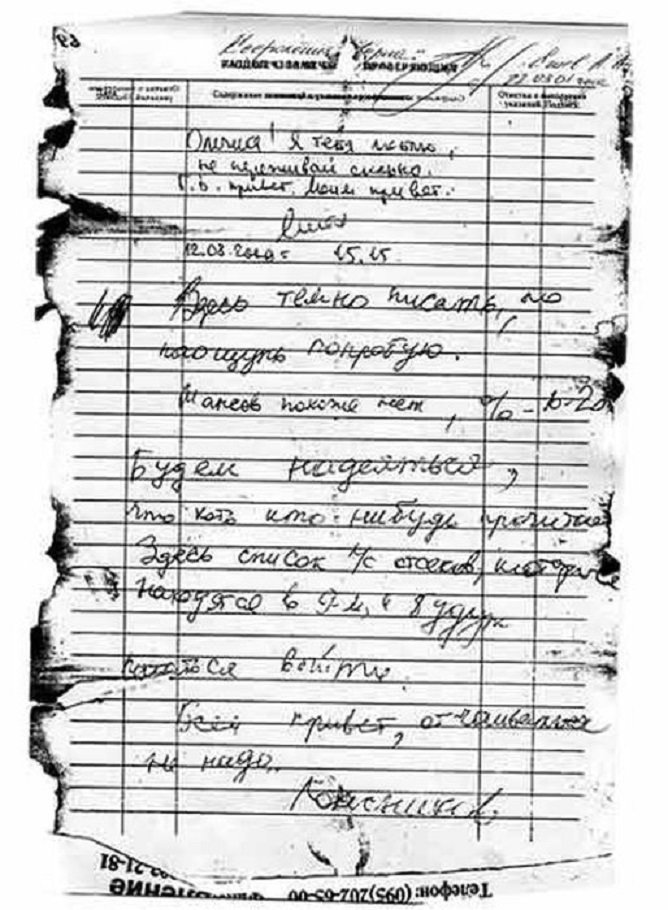 ПРОВЕРЯЮЩИХ
22.03.01
Олечка! Я тебя люблю,
не переживай сильно.
Г.В. привет. Моим привет.
12.08.2000г 15.15.
Здесь темно писать, но
наощупь попробую.
Шансов похоже нет, % - 10-20
Будем надеяться,
что хоть кто-нибудь прочитает
Здесь список л/с отсеков, которые
находятся в 9-м, и будут
пытаться выйти.
Всем привет, отчаиваться
не надо.
Колесников
Телефон: (095)202-65-00
21-81